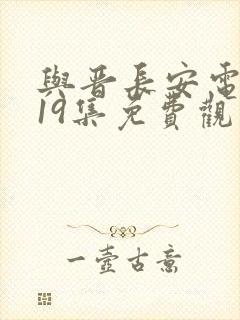 與晋長安電
19集免費觀
一壺古意